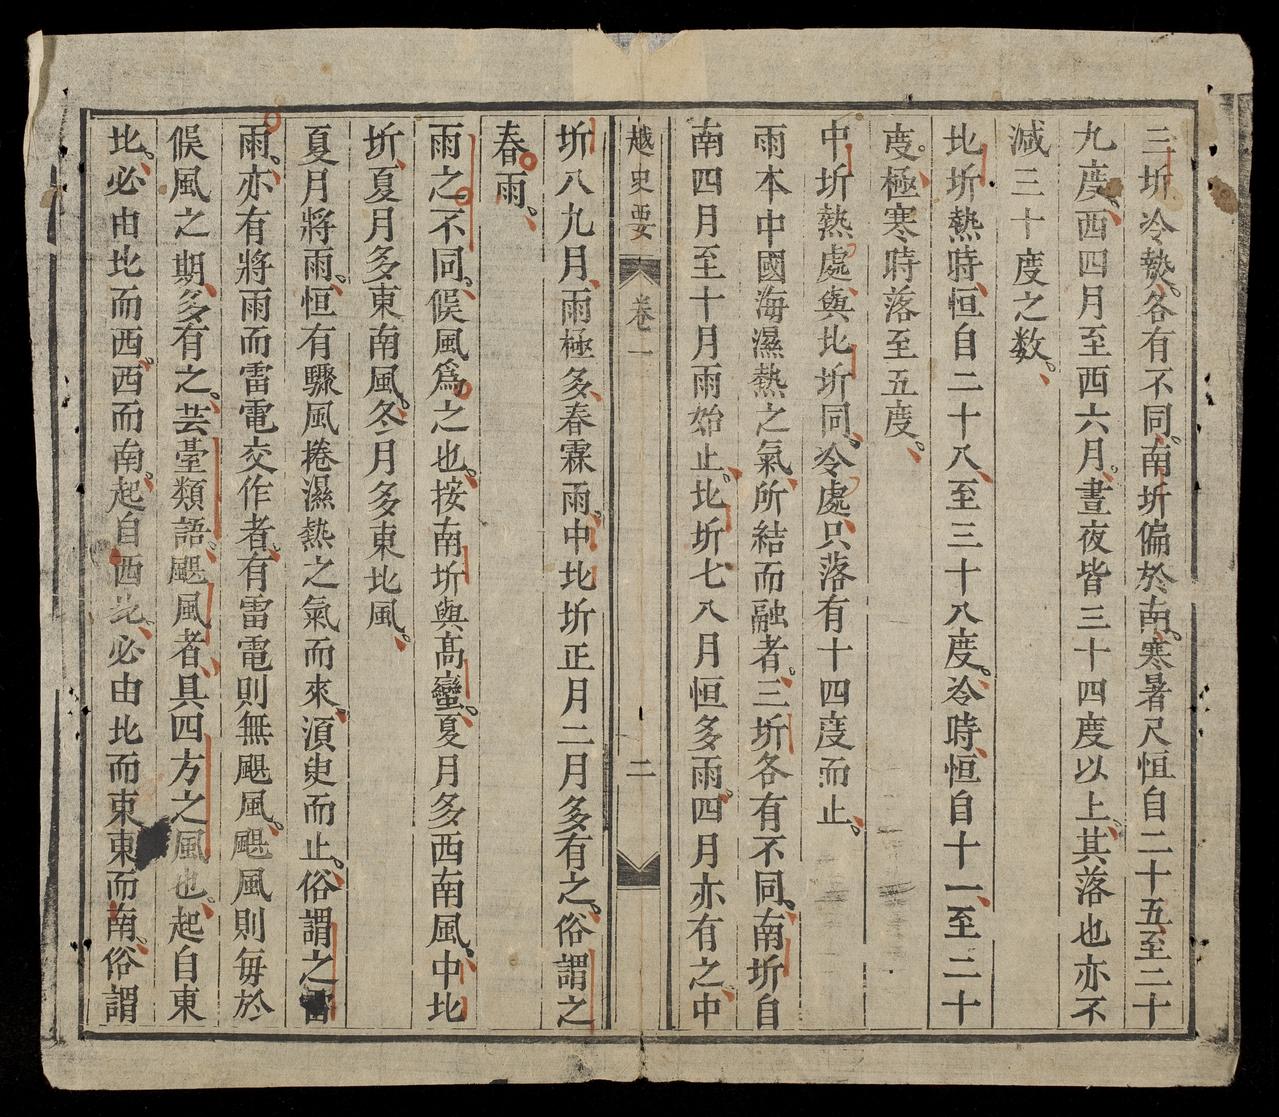 三圻冷𤍠。各有不同。南圻偏於南。寒暑尺恒自二十五至三十
九度。西四月至西六月。晝夜皆三十四度以上。其落也亦不
減三十度之数。
北圻熱時。恒自二十八至三十八度。冷時恒自十一至二十
度。極寒時落至五度。
中圻熱處與北圻同。冷處只落有十四度而止。
雨本中國海濕熱之氣所結而融者。三圻各有不同。南圻自
南四月至十月雨始止。北圻七八月恒多雨。四月亦有之。中
越史要 卷一 二
圻八九月。雨極多。春霖雨。中北圻正月二月多有之。俗謂之
春雨。
雨之不同。候風爲之也。按南圻與高蠻。夏月多西南風。中北
圻。夏月多東南風。冬月多東北風。
夏月將雨。恒有驟風捲濕熱之氣而來。湏臾而止。俗謂之
雨。亦有將雨而雷電交作者。有雷電則無颶風。颶風則每於
候風之期。多有之。芸臺類語。颶風者。具四方之風也。起自東
北。必由北而西。西而南。起自西北。必由北而東。東而南。俗謂